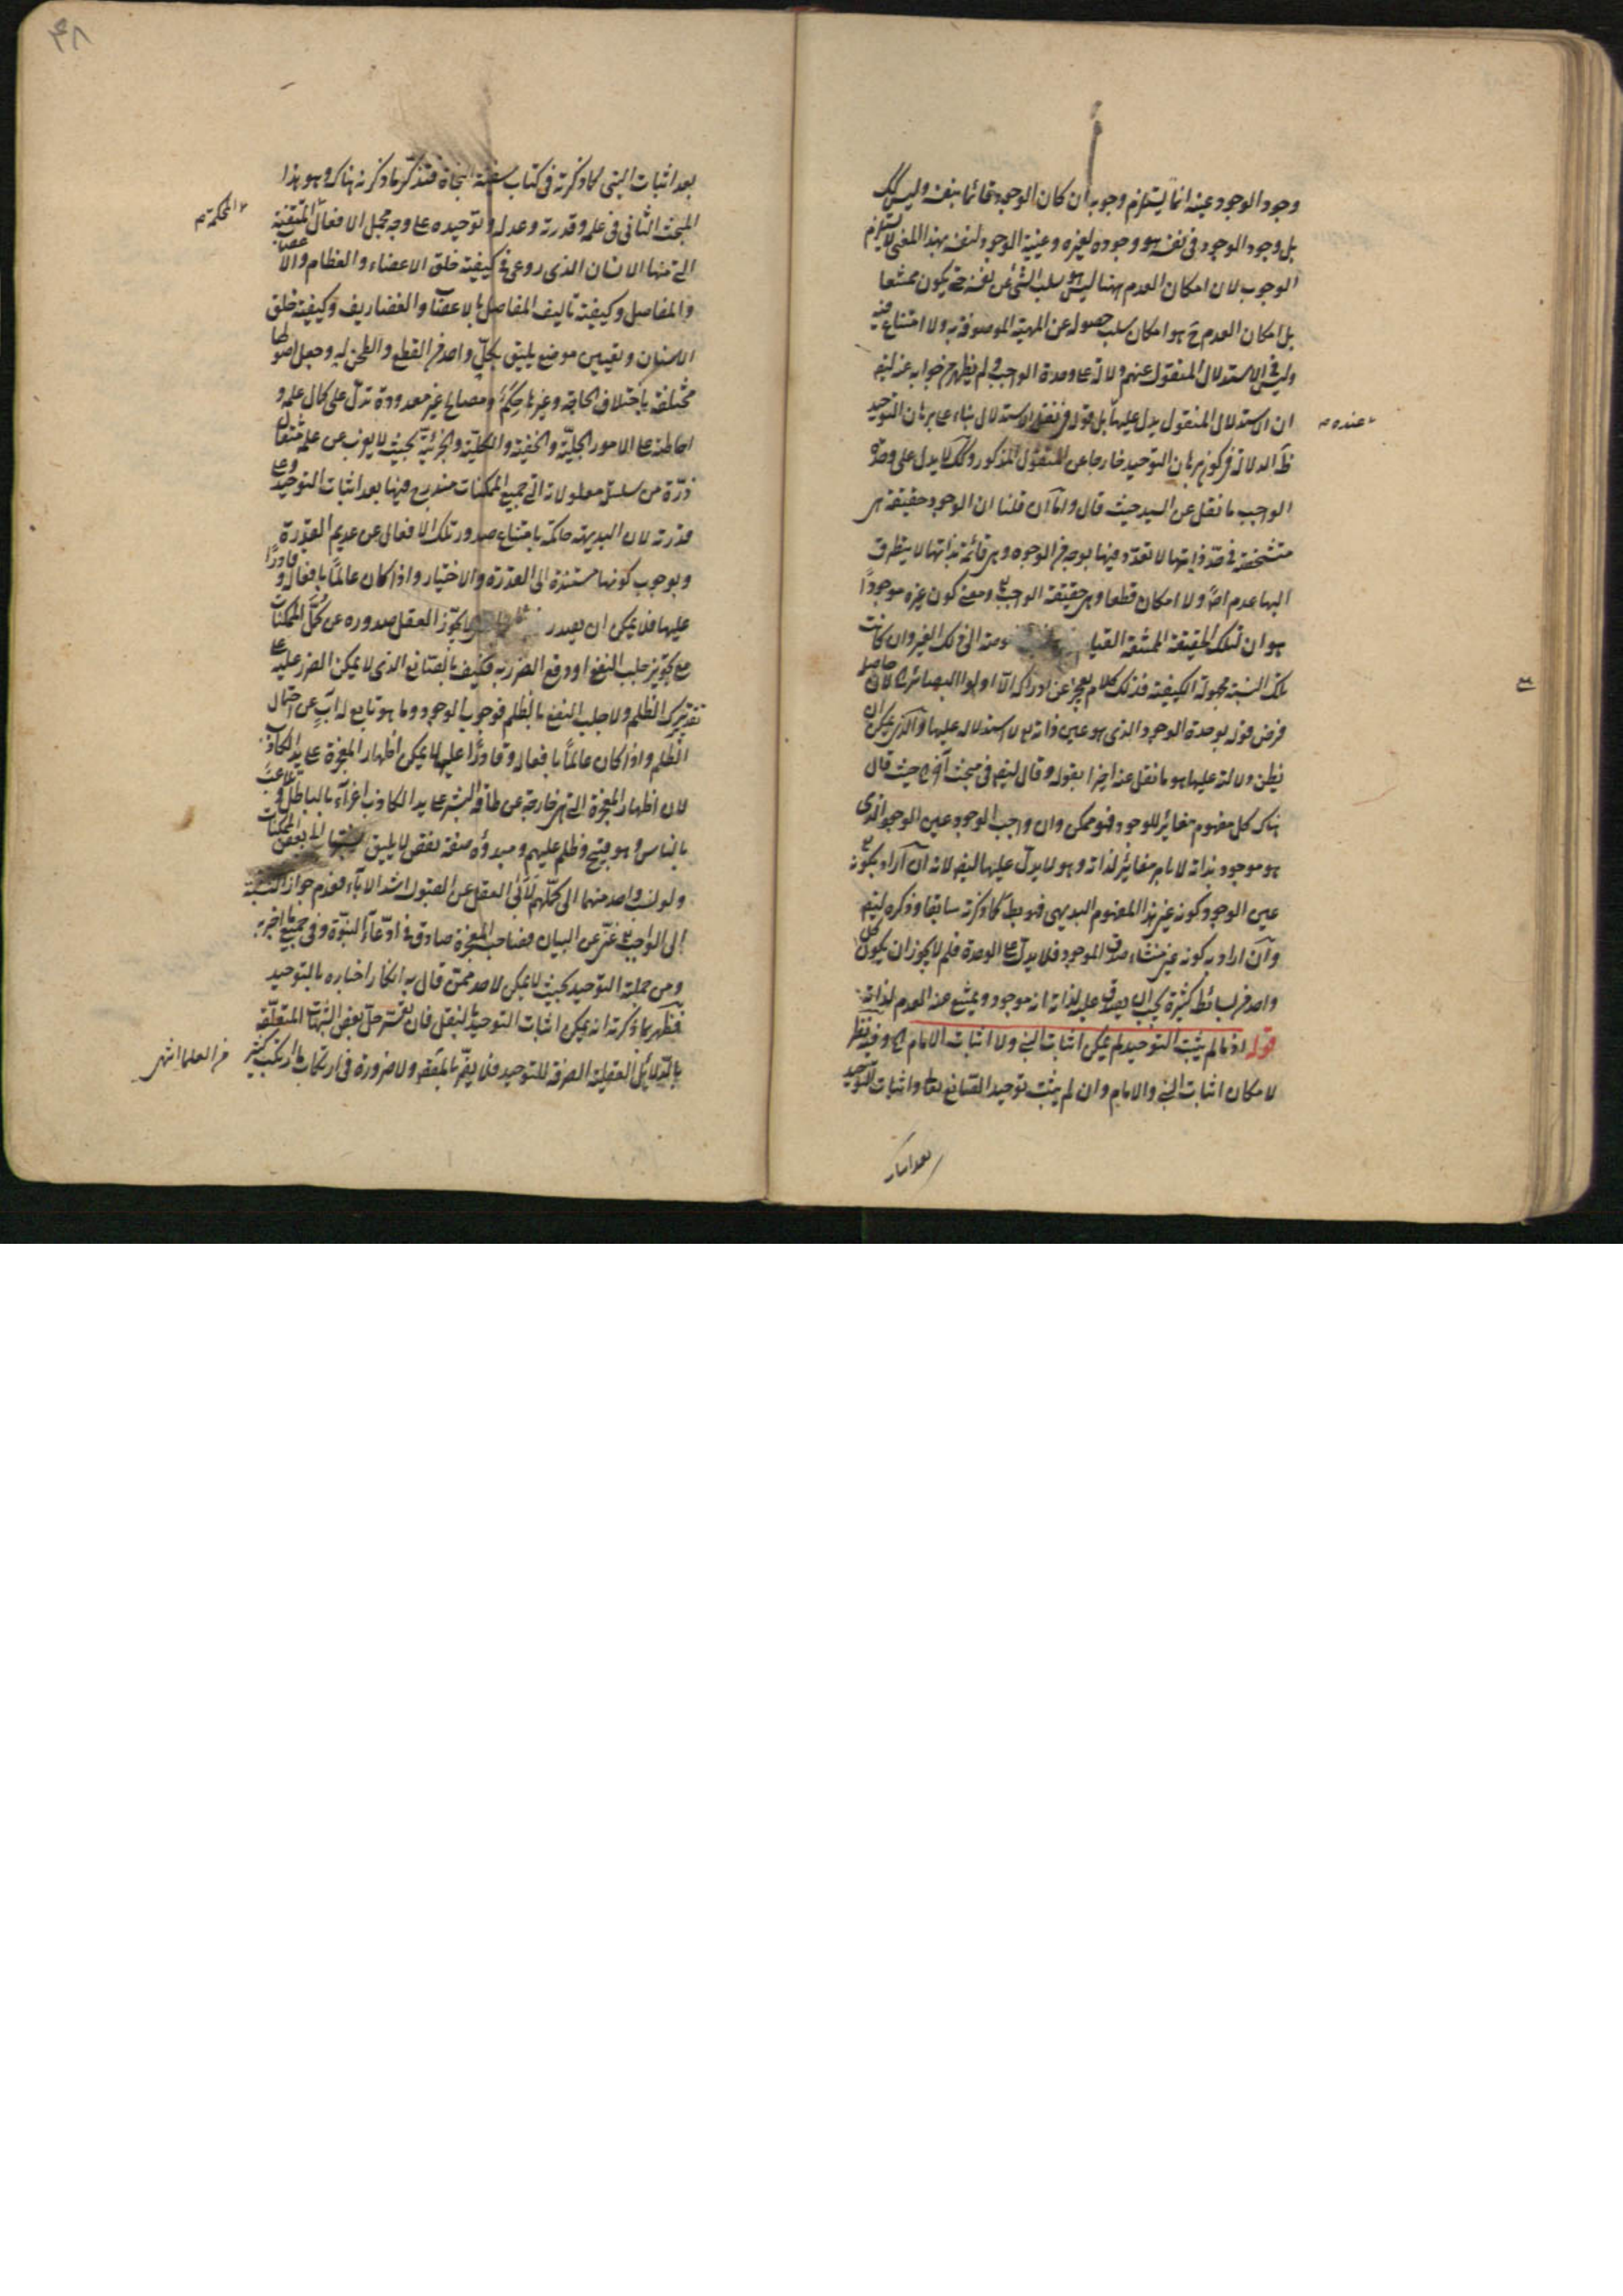 وجود الوجود عينه انما يستلزم وجوبه ان كان الوجود قائما بنفسه وليس كك
بل وجود الوجود فى نفسه هو وجوده لغيره وعينية الوجود لنفسه بهذا المعنى لا يستلزم
الوجوب لان امكان العدم ههنا ليس هو سلب الشئ عن نفسه حتى يكون ممتنعا
بل امكان العدم ح هو امكان سلب حصوله عن المهية الموصوفة به ولا امتناع فيه
وليس فى الاستدلال المنقول عنهم دلالة على وحدة الواجب ولم يظهر من جوابه عنه ايضا
ان الاستدلال المنقول يدل عليها بل قوله الاستدلال بناء على برهان التوحيد
عنده
الدلالة فى كون برهان التوحيد خارجا عن المنقول المذكور وكك لا يدل على وحدة
الواجب ما نقل عن السيد حيث قال واما ان قلنا ان الوجود حقيقة
متشخصة فى حد ذاتها لا تعدد فيها بوجه من الوجوه وهى قائمة بذاتها لا يتطرق
اليها عدم اصلا ولا امكان قطعا وهى حقيقة الواجب ومعنى كون غيره موجودا
هو ان لتلك الحقيقة الممتنعة القيا الى ذلك الغير وان كانت
تلك النسبة مجهولة الكيفية فذلك كلام يعجز عن ادراكه الا اولوا البصائر لان حاصل
فرض قوله بوحدة الوجود الذى هو عين ذاته لا استدلال عليها والذى يمكن ان
يظن دلالته عليها هو ما نقل عنه اخرا بقوله وقال ايضا فى مبحث آخر حيث قال
هناك كل مفهوم مغائر للوجود فهو ممكن وان واجب الوجود عين الوجود الذى
هو موجود بذاته لا بامر مغائر لذاته وهو لا يدل عليها ايضا لانه ان اراد بكونه
عين الوجود كونه عين هذا المفهوم البديهى فهو بط كما ذكرته سابقا وذكره ايضا
وان اراد به كونه عين منشاء صدق الموجود فلا يدل على الوحدة فلم لا يجوز ان يكون كل
واحد من بسائط كثيرة بحيث يصدق عليه لذاته انه موجود ويمتنع عنه العدم لذاته
قوله اذ ما لم يثبت التوحيد لم يمكن اثبات النبى ولا اثبات الامام الخ وفيه نظر
لامكان اثبات النبى والامام وان لم يثبت توحيد الصانع تعالى واثبات التوحيد
بعد اثبات
٤٨
بعد اثبات النبى كما ذكرته فى كتاب سفينة النجاة فنذكر ما ذكرته هناك وهو هذا
المبحث الثانى فى علمه وقدرته وعدله وتوحيده على وجه مجمل الافعال المتقنة
المحكمة
التى منها الانسان الذى روعى فى كيفية خلق الاعضاء والعظام والاعصاب
والمفاصل وكيفية تاليف المفاصل بالاعصاب والغضاريف وكيفية خلق
الاسنان وتعيين موضع يليق بكل واحد من القطع والطحن له وجعل اصولها
مختلفة باختلاف الحاجة وغيرها حكم ومصالح غير معدودة تدل على كمال علمه و
احاطته على الامور الجلية والخفية والكلية والجزئية بحيث لا يعزب عن علمه مثقال
ذرة من سلسلة معلولاته التى جميع الممكنات مندرج فيها بعد اثبات التوحيد وعلى
قدرته لان البديهة حاكمة بامتناع صدور تلك الافعال عن عديم القدرة
وبوجوب كونها مستندة الى القدرة والاختيار واذا كان عالما بافعاله وقادرا
عليها فلا يمكن ان يصدر يجوز العقل صدوره عن كمل الممكنات
مع تجويز جلب النفع او دفع الضرر به فكيف بالصانع الذى لا يمكن الضرر عليه على
تقدير ترك الظلم ولا جلب النفع بالظلم فوجوب الوجود وما هو تابع له آب عن احتمال
الظلم واذا كان عالما بافعاله وقادرا عليها لا يمكن اظهار المعجزة على يد الكاذب
لان اظهار المعجزة التى هى خارجة عن طاقة البشر على يد الكاذب اغراء بالباطل و
بالناس وهو قبيح وظلم عليهم ومبدؤه صفة نقص لا يليق بعض الممكنات
ولو نسب واحد منهما الى كملهم لأبى العقل عن القبول اشد الاباء فعدم جواز النسبة
الى الواجب غنى عن البيان فصاحب المعجزة صادق فى ادعاء النبوة وفى جميع ما اخبر به
ومن جملته التوحيد بحيث لا يمكن لاحد ممن قال به انكار اخباره بالتوحيد
فظهر بما ذكرته انه يمكن اثبات التوحيد بالنقل فان تعسر حل بعض الشبهات المتعلقة
بالدلائل العقلية الصرفة للتوحيد فلا يضر بالمقصود ولا ضرورة فى ارتكاب ما ارتكب كثير
من العلماء